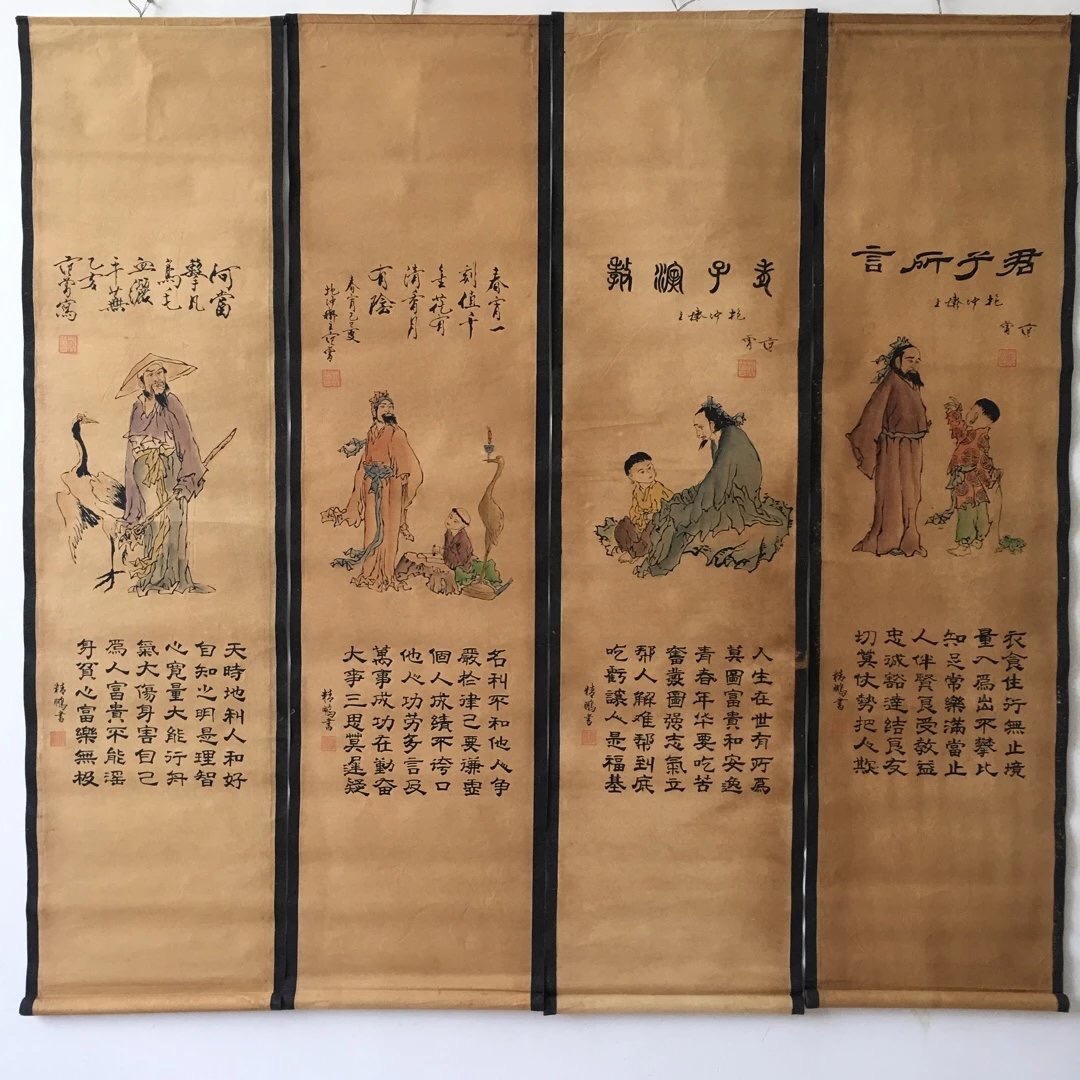 君子所言
抱冲斋主
范曾
衣食住行無止境
量入爲出不攀比
知足常樂滿當止
人伴賢良受教益
忠誠豁達結良友
切莫仗勢把人欺
精鵬書
老子演教
抱冲斋主
范曾
人生在世有所爲
莫圖富貴和安逸
青春年华要吃苦
奮發圖强志氣立
帮人解难帮到底
吃虧讓人是福基
精鵬書
春宵一
刻值千
金花有
清香月
有陰
春宵乙亥
抱冲斋主范曾
名利不和他人争
嚴於律己要謙虚
個人成績不誇口
他人功劳多言及
萬事成功在勤奋
大事三思莫遲疑
精鵬書
何當
擊凡
鳥毛
血灑
平蕪
乙亥
范曾寫
天時地利人和好
自知之明是理智
心寬量大能行舟
氣大傷身害自己
爲人富貴不能淫
身貧心富樂無極
精鵬書